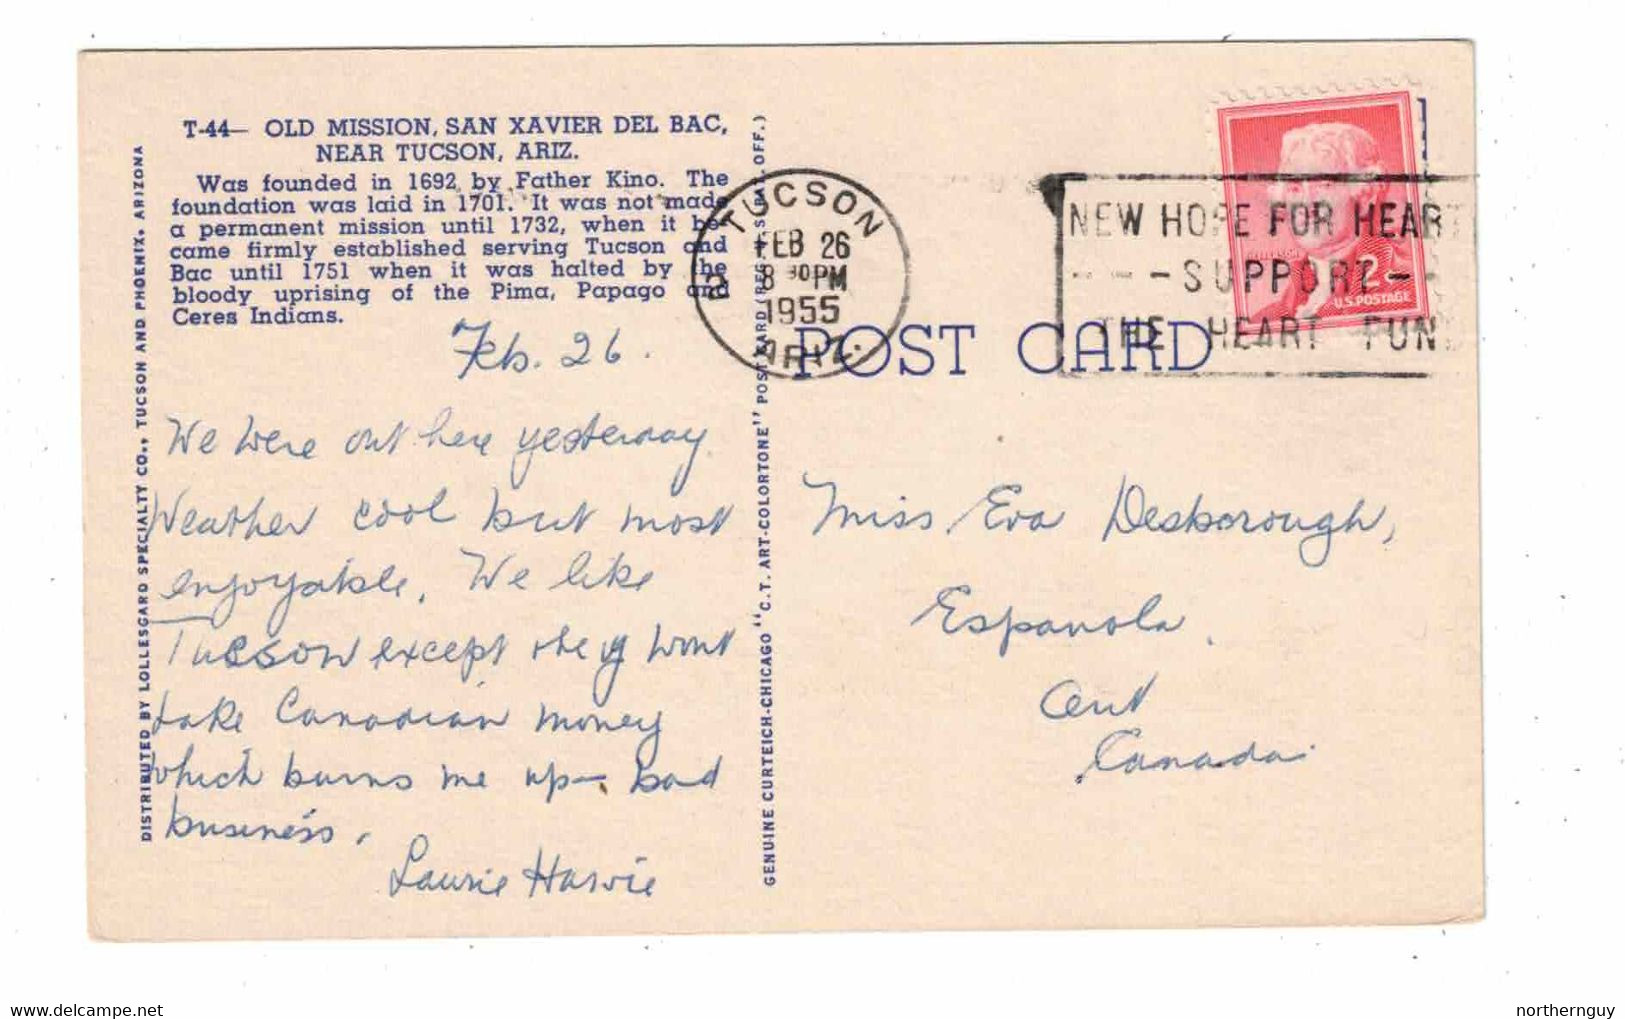 T-44— OLD MISSION, SAN XAVIER DEL BAC,
NEAR TUCSON, ARIZ.
Was founded in 1692 by Father Kino. The
foundation was laid in 1701. It was not made
a permanent mission until 1732, when it be-
came firmly established serving Tucson and
Bac until 1751 when it was halted by the
bloody uprising of the Pima, Papago and
Ceres Indians.
Feb. 26.
We were out here yesterday.
Weather cool but most
enjoyable. We like
Tucson except they wont
take Canadian money
which burns me up— bad
business.
Laurie Harvie
DISTRIBUTED BY LOLLESGARD SPECIALTY CO., TUCSON AND PHOENIX, ARIZONA
GENUINE CURTEICH-CHICAGO "C.T. ART-COLORTONE" POST CARD (REG. U.S. PAT. OFF.)
TUCSON
FEB 26
8 30 PM
1955
ARIZ.
2
NEW HOPE FOR HEART
- - - SUPPORT - -
THE HEART FUN
2¢
U.S. POSTAGE
POST CARD
Miss Eva Desborough,
Espanola.
Ont
Canada.
www.delcampe.net
northernguy